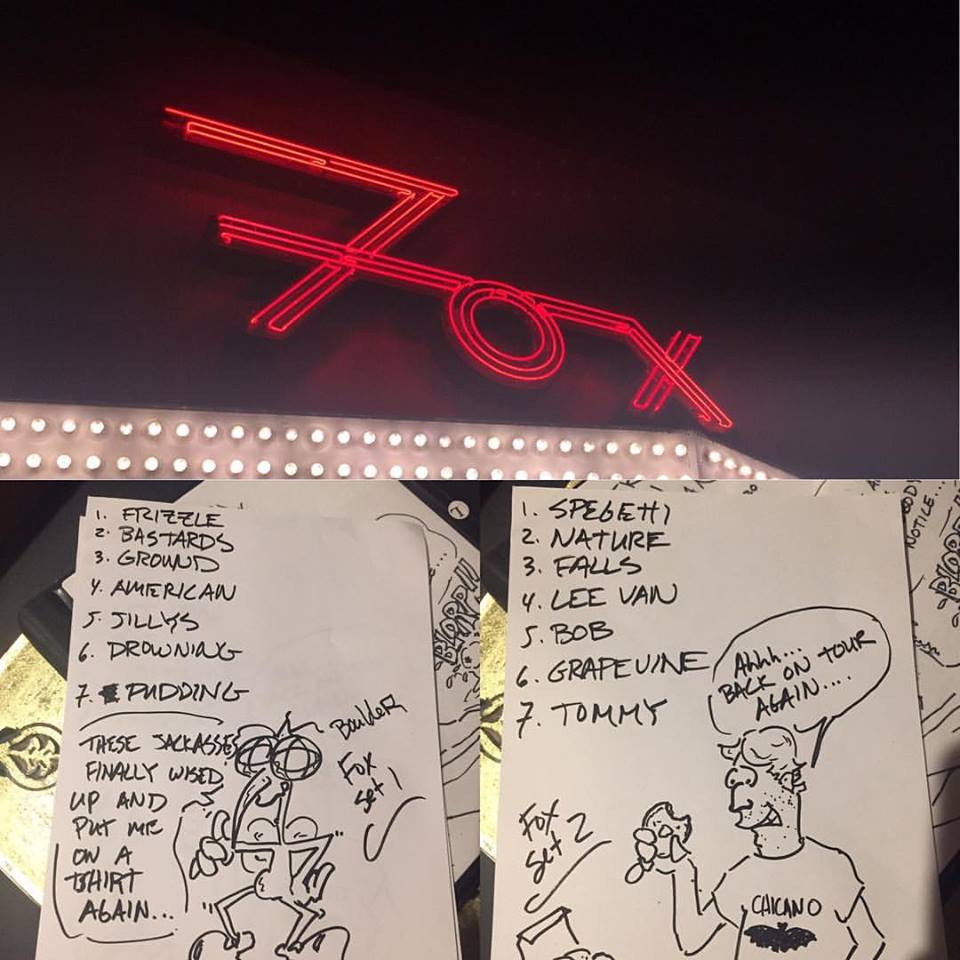 Fox
1. FRIZZLE
2. BASTARDS
3. GROUND
4. AMERICAN
5. JILLYS
6. DROWNING
7. PUDDING
THESE JACKASSES
FINALLY WISED
UP AND
PUT ME
ON A
TSHIRT
AGAIN...
BOULDER
FOX
SET 1
1. SPEGETTI
2. NATURE
3. FALLS
4. LEE VAN
5. BOB
6. GRAPEVINE
7. TOMMY
Ahhh...
BACK ON TOUR
AGAIN....
FOX
SET 2
CHICANO
NOTICE...